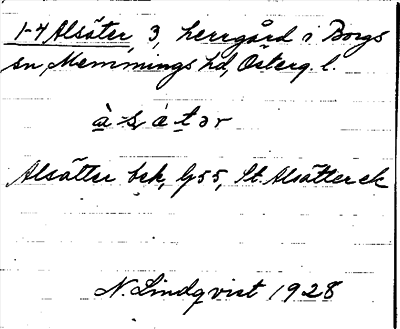 1-4 Alsäter 3 herrgård i Borgs
sn, Memmings hd, Österg. l.
à·s, ätər
Alsätter bsk, G55, St. Alsätter ek
N. Lindqvist 1928